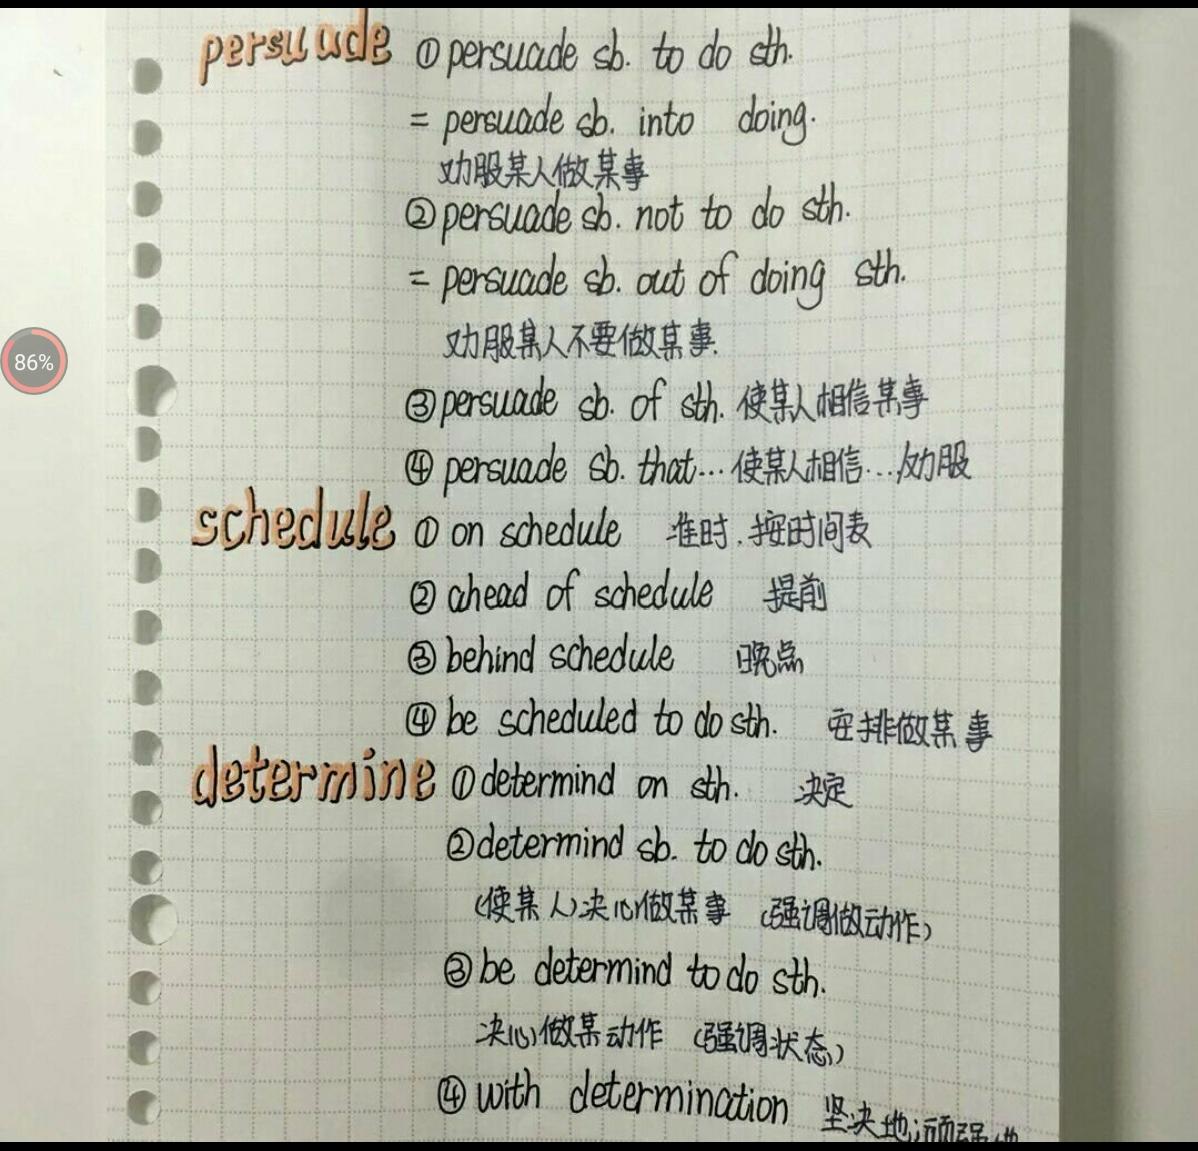 persuade ① persuade sb. to do sth.
= persuade sb. into doing.
劝服某人做某事
② persuade sb. not to do sth.
= persuade sb. out of doing sth.
劝服某人不要做某事.
③ persuade sb. of sth. 使某人相信某事
④ persuade sb. that... 使某人相信...劝服
schedule ① on schedule 准时.按时间表
② ahead of schedule 提前
③ behind schedule 晚点
④ be scheduled to do sth. 安排做某事
determine ① determind on sth. 决定
② determind sb. to do sth.
(使某人)决心做某事 (强调做动作)
③ be determind to do sth.
决心做某动作 (强调状态)
④ with determination 坚决地;顽强地
86%